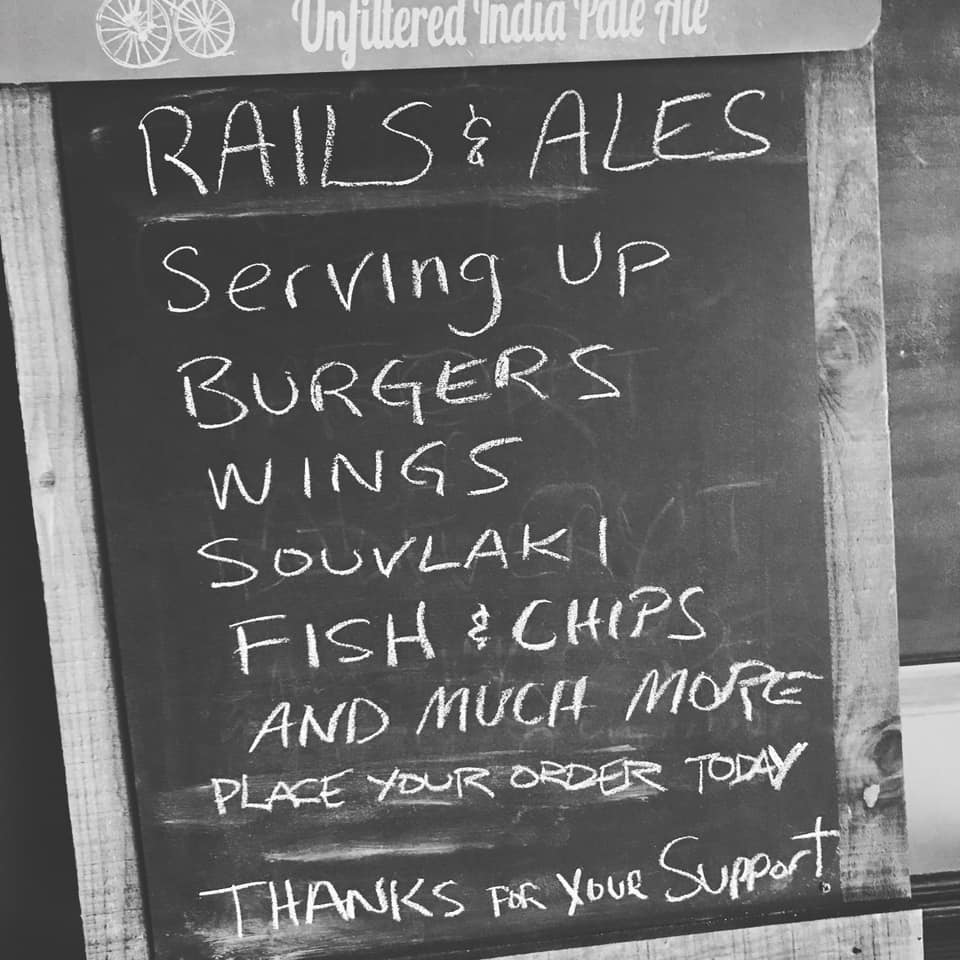 Unfiltered India Pale Ale
RAILS & ALES
Serving UP
BURGERS
WINGS
SOUVLAKI
FISH & CHIPS
AND MUCH MORE
PLACE YOUR ORDER TODAY
THANKS FOR YOUR SUPPORT!